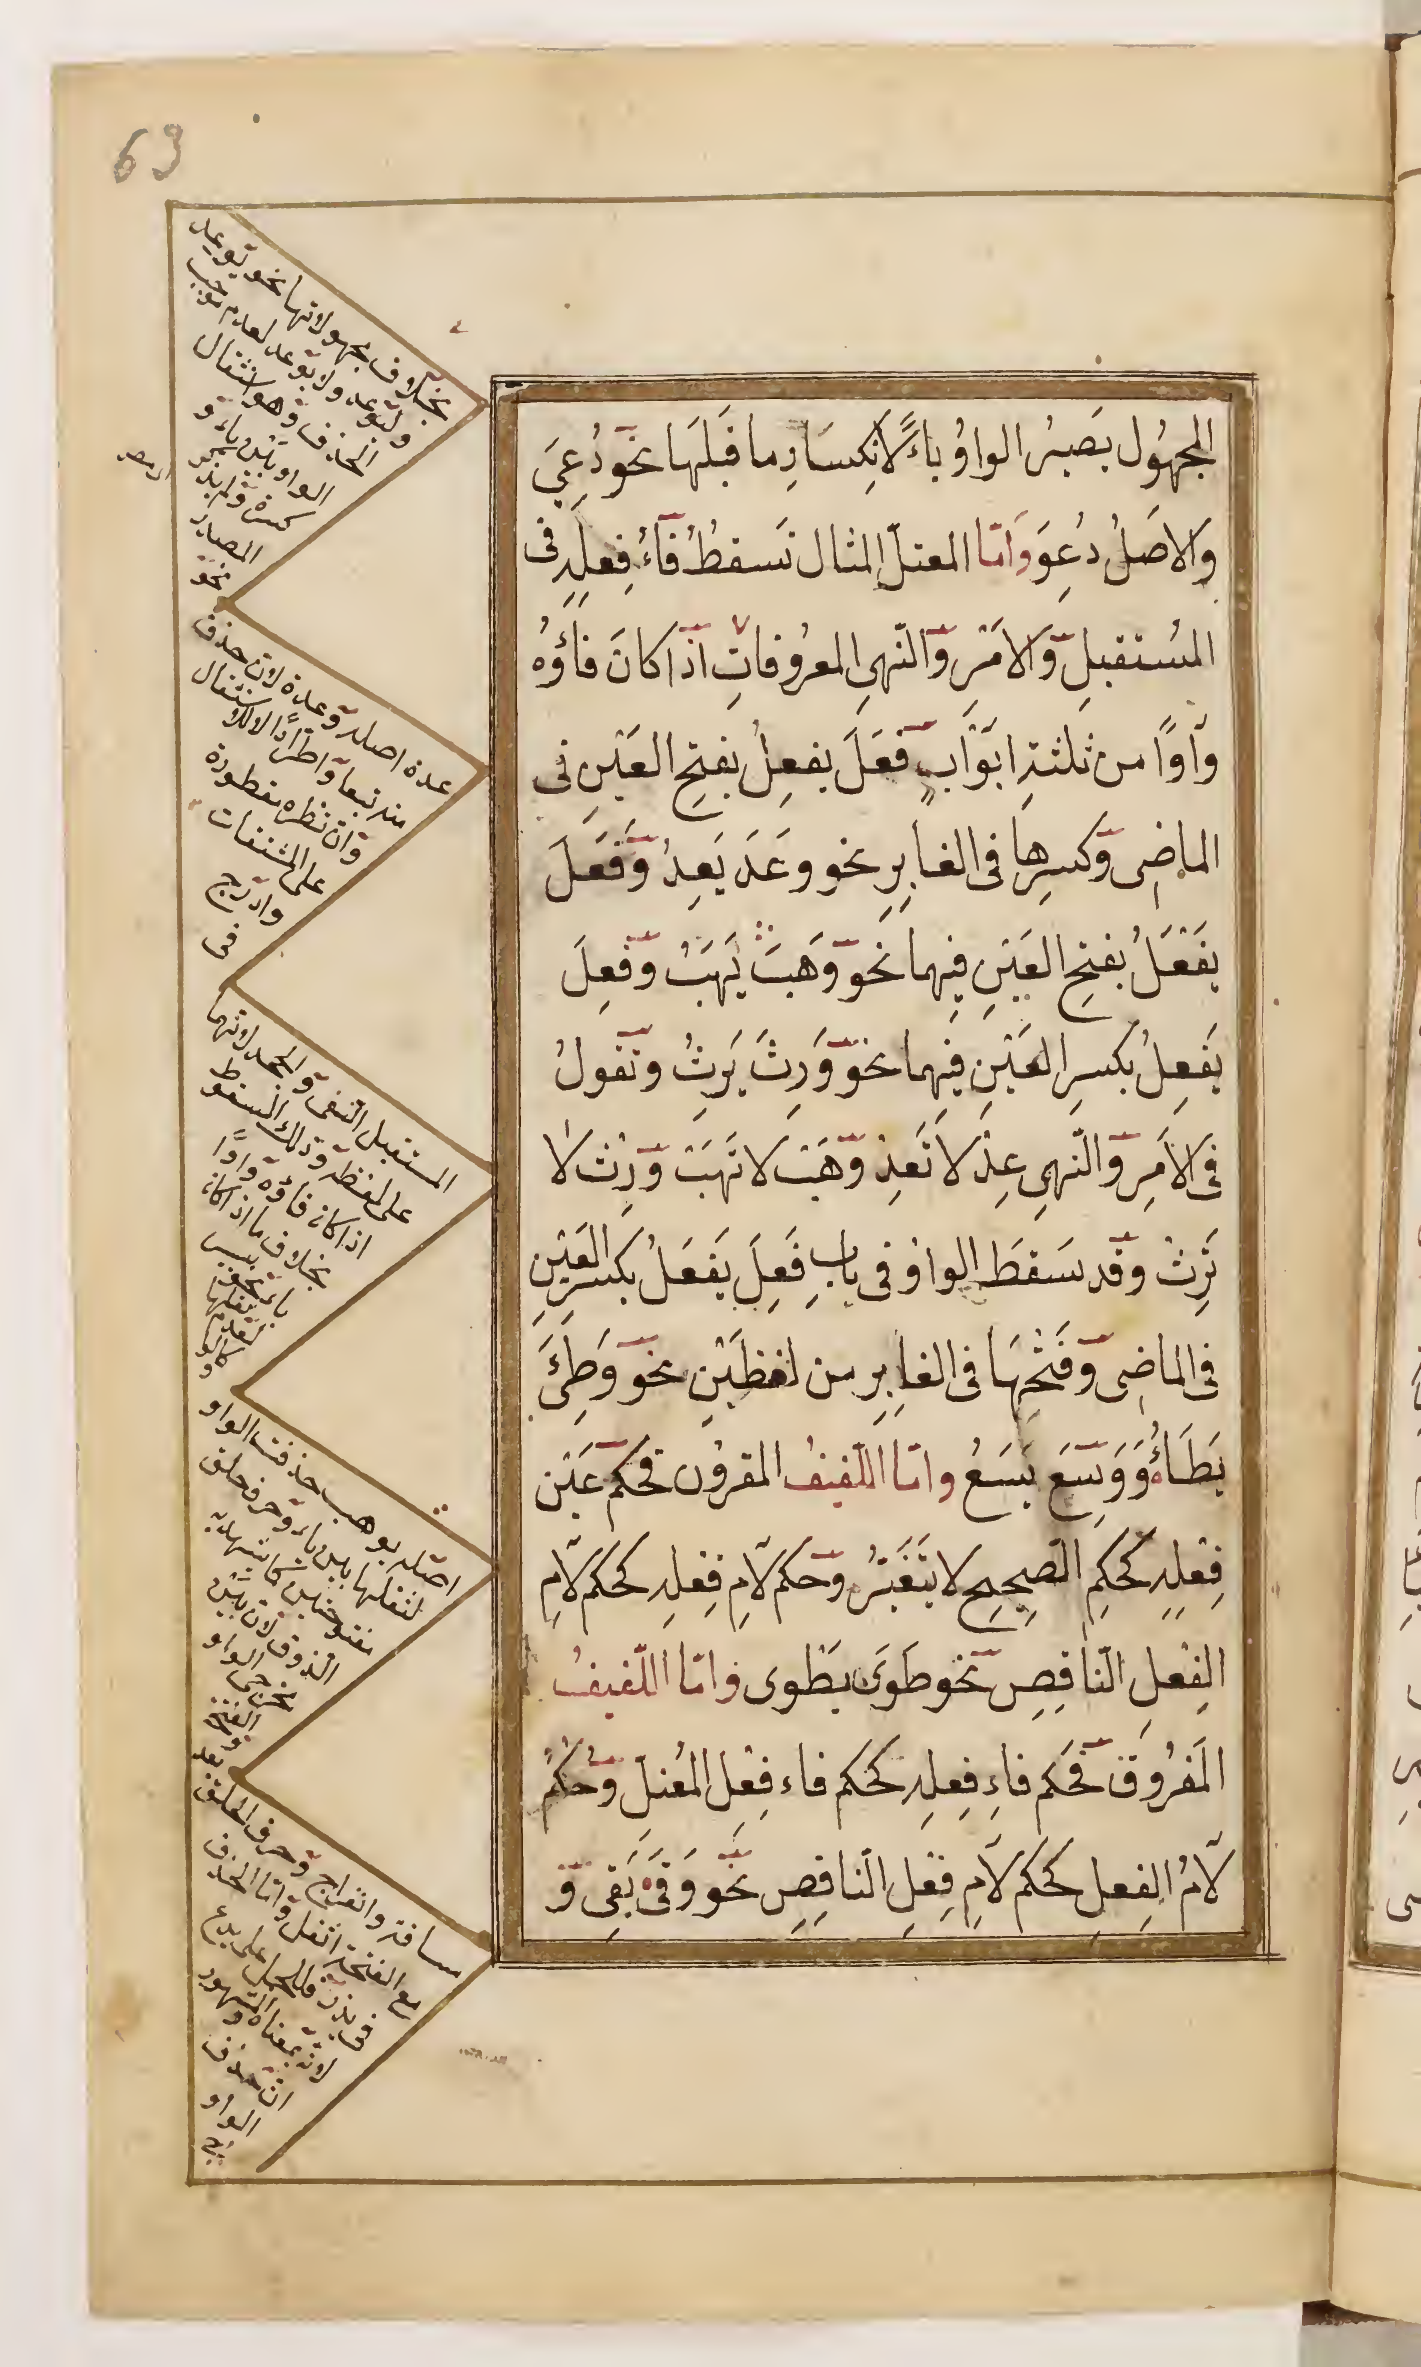 63
المجهُول يَصيرُ الواوُ ياءً لانكِسَارِ ما قَبلَها نحو دُعِيَ
والاصلُ دُعِوَ وَامّا المعتلّ المثال تسقطُ فآءُ فِعلِهِ فى
المُستقبلِ وَالامرِ وَالنّهىِ المعرُوفاتِ اذا كانَ فاؤُهُ
واوًا من ثلثةِ ابوَابٍ فَعَلَ يفعِلُ بفتحِ العَيْنِ فى
الماضِى وكسرِها فى الغابِرِ نحو وعَدَ يَعِدُ وَفَعَلَ
يَفْعَلُ بفتحِ العَيْنِ فِيهما نحو وَهَبَ يَهَبُ وفَعِلَ
يَفعِلُ بكسرِ العَيْنِ فِيهما نحو وَرِثَ يَرِثُ وتقولُ
فى الامرِ والنّهىِ عِدْ لا تَعِدْ وَهَبْ لا تَهَبْ وَرِثْ لا
تَرِثْ وقد تسقطَ الواوُ فى بابِ فَعِلَ يَفعَلُ بكسرِ العَيْنِ
فى الماضِى وفَتْحِهَا فى الغابِرِ من لفظَيْنِ نحو وَطِئَ
يَطَاءُ وَوَسِعَ يَسَعُ وامّا اللّفيفُ المقرُون فحكم عَيْن
فِعْلِهِ كحكمِ الصّحِيحِ لا يتغَيّرُ وحكم لامِ فِعلِهِ كحكم لامِ
الفِعلِ النّاقِصِ نحو طَوَى يَطْوِى وامّا اللّفيفُ
المَفرُوق فحُكم فاءِ فِعلِهِ كحكم فاء فِعْلِ المُعتلّ وحُكمُ
لامُ الفِعلِ كحكم لامِ فِعْلِ النّاقِصِ نحو وَقَى يَقِى وَ
بخلاف مجهولاتها نحو يوعد
ولتوعد ولا يوعد لعدم موجب
الحذف وهو استثقال
الواو بين ياء و
المصادر
نحو
عدة اصله وعدة لان حذف
منه تبعا واطرادا لا للاستثقال
على المشتقات
وادرج
فى
المستقبل النفى والجحد لانهما
على لفظه وذلك السقوط
اذا كان فاؤه واوًا
بخلاف ما اذا كان
ياء نحو ييسر
لعدم ثقلها
كالواو
اصله يوهب حذفت الواو
لثقلها بين ياء وحرف حلق
مفتوحتين كما يشهد به
الذوق لان بين
مخرجى الواو
بعد
مسافة وانفراج وحرف الحلق
مع الفتحة اثقل واما الحذف
فى يذر فللحمل على يدع
لانه بمعناه والمشهور
ان حذف
الواو
فى